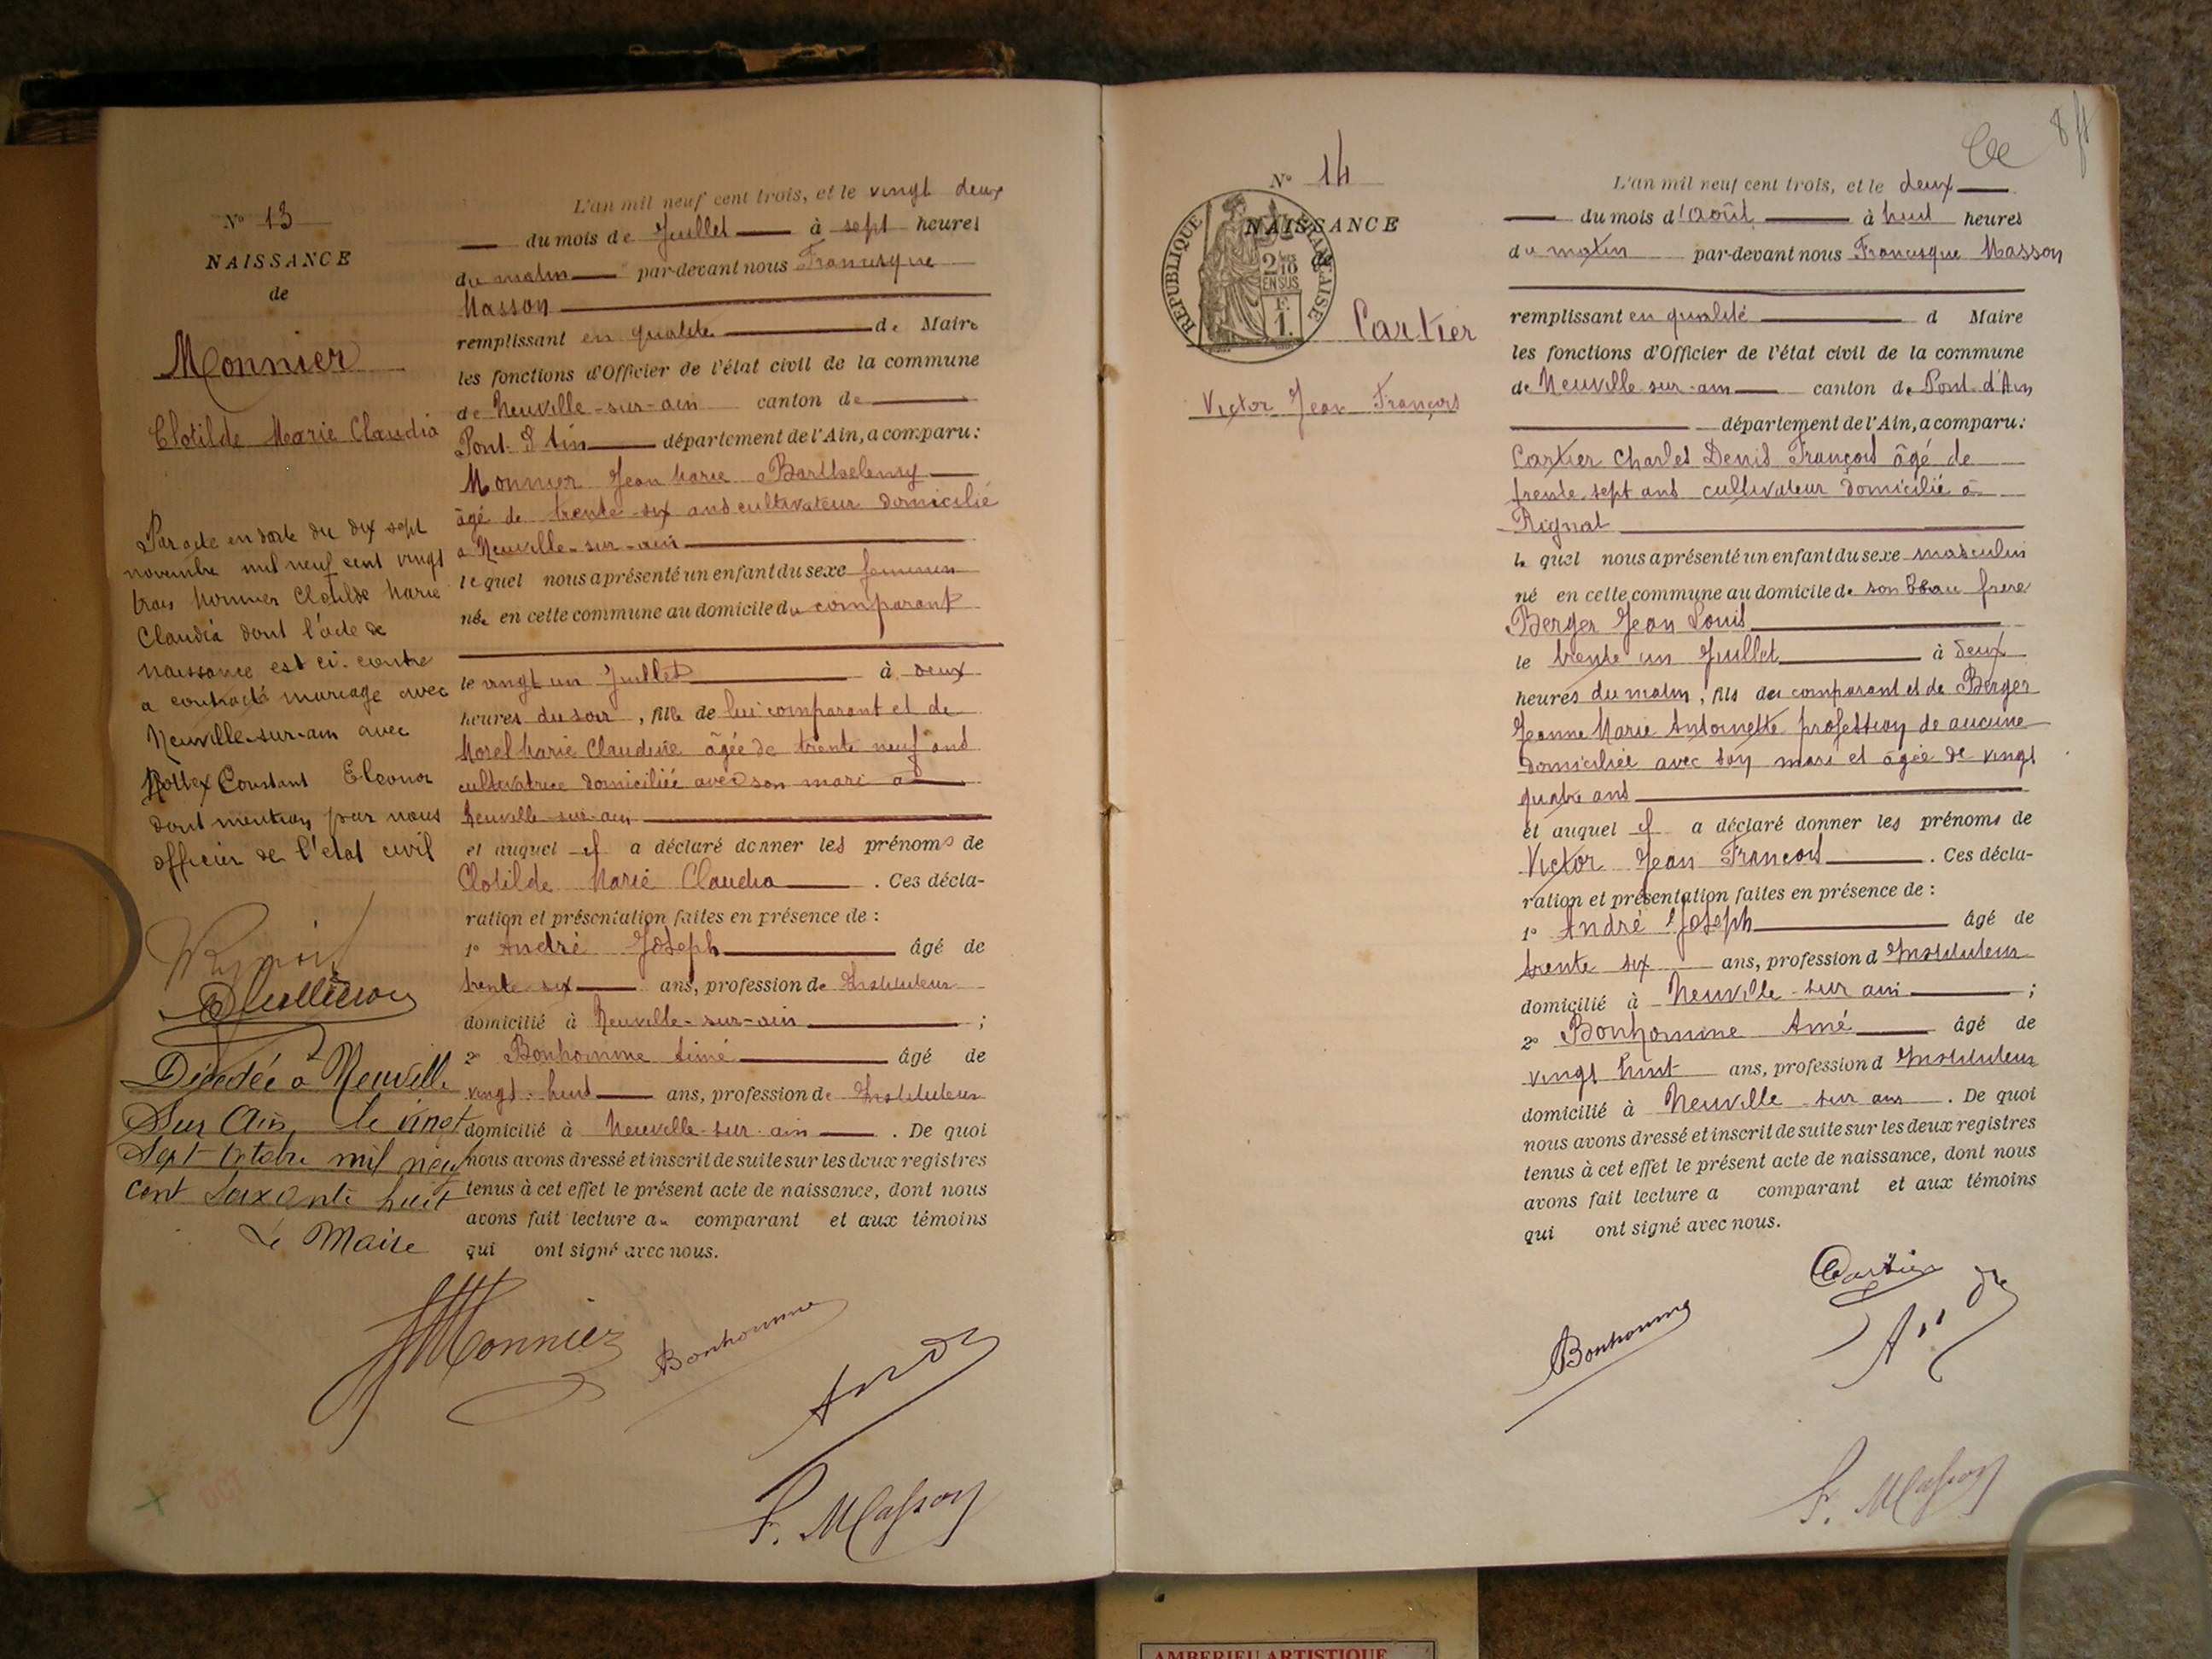 N° 13
NAISSANCE
de
Monnier
Clotilde Marie Claudia
Par acte en date du dix sept
novembre mil neuf cent vingt
trois Monnier Clotilde Marie
Claudia dont l'acte de
naissance est ci-contre
a contracté mariage avec
Neuville-sur-ain avec
Constant Eleonor
dont mention par nous
officier de l'état civil
Décédée à Neuville
Sur Ain, le vingt
Sept Octobre mil neuf
cent soixante huit
Le Maire
L'an mil neuf cent trois, et le vingt deux
du mois de Juillet à sept heures
du matin par-devant nous Francisque
Masson
remplissant en qualité de Maire
les fonctions d'Officier de l'état civil de la commune
de Neuville-sur-ain canton de
Pont-d'Ain département de l'Ain, a comparu:
Monnier Jean Marie Barthelemy
âgé de trente-six ans cultivateur domicilié
a Neuville-sur-ain
lequel nous a présenté un enfant du sexe feminin
née en cette commune au domicile du comparant
le vingt un Juillet à deux
heures du soir, fille de lui comparant et de
Morel Marie Claudine âgée de trente neuf ans
cultivatrice domiciliée avec son mari a
Neuville-sur-ain
et auquel il a déclaré donner les prénoms de
Clotilde Marie Claudia. Ces décla-
ration et présentation faites en présence de :
1° André Joseph âgé de
trente six ans, profession de Instituteur
domicilié à Neuville-sur-ain ;
2° Bonhomme Aimé âgé de
vingt-huit ans, profession de Instituteur
domicilié à Neuville-sur-ain. De quoi
nous avons dressé et inscrit de suite sur les deux registres
tenus à cet effet le présent acte de naissance, dont nous
avons fait lecture au comparant et aux témoins
qui ont signé avec nous.
Monnier
Bonhomme
André
F. Masson
8
N° 14
NAISSANCE
de
REPUBLIQUE FRANÇAISE
2/10
EN SUS
F.
1.
Cartier
Victor Jean François
L'an mil neuf cent trois, et le deux
du mois d'Août à huit heures
du matin par-devant nous Francisque Masson
remplissant en qualité d Maire
les fonctions d'Officier de l'état civil de la commune
de Neuville-sur-ain canton de Pont-d'Ain
département de l'Ain, a comparu:
Cartier Charles Denis François âgé de
trente-sept ans cultivateur domicilié à
Rignat
lequel nous a présenté un enfant du sexe masculin
né en cette commune au domicile de son beau frere
Berger Jean Louis
le trente un Juillet à deux
heures du matin, fils du comparant et de Berger
Jeanne Marie Antoinette profession de aucune
domiciliée avec son mari et âgée de vingt
quatre ans
et auquel il a déclaré donner les prénoms de
Victor Jean François. Ces décla-
ration et présentation faites en présence de :
1° André Joseph âgé de
trente six ans, profession d Instituteur
domicilié à Neuville-sur ain ;
2° Bonhomme Aimé âgé de
vingt huit ans, profession d Instituteur
domicilié à Neuville-sur ain. De quoi
nous avons dressé et inscrit de suite sur les deux registres
tenus à cet effet le présent acte de naissance, dont nous
avons fait lecture a comparant et aux témoins
qui ont signé avec nous.
Cartier
Bonhomme
André
F. Masson
AMBERIEU ARTISTIQUE